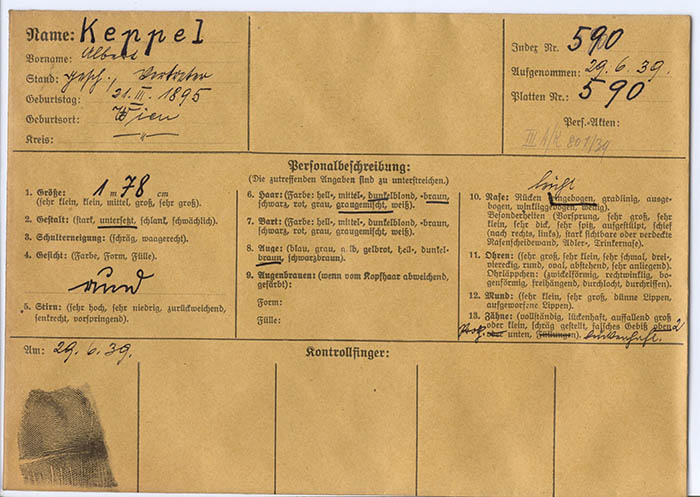 Name: Keppel
Vorname: Albert
Stand: gesch., Vertreter
Geburtstag: 21. III. 1895
Geburtsort: Wien
Kreis: — " —
Index Nr. 590
Aufgenommen: 29. 6. 39.
Platten Nr.: 590
Pers.-Akten:
801/39
Personalbeschreibung:
(Die zutreffenden Angaben sind zu unterstreichen.)
1. Größe: 1 m 78 cm
(sehr klein, klein, mittel, groß, sehr groß).
2. Gestalt: (stark, untersetzt, schlank, schwächlich).
3. Schulterneigung: (schräg, waagerecht).
4. Gesicht: (Farbe, Form, Fülle).
rund
5. Stirn: (sehr hoch, sehr niedrig, zurückweichend,
senkrecht, vorspringend).
6. Haar: (Farbe: hell-, mittel-, dunkelblond, -braun,
schwarz, rot, grau, graugemischt, weiß).
7. Bart: (Farbe: hell-, mittel-, dunkelblond, -braun,
schwarz, rot, grau, graugemischt, weiß).
8. Auge: (blau, grau, gelb, gelbrot, hell-, dunkel-
braun, schwarzbraun).
9. Augenbrauen: (wenn vom Kopfhaar abweichend,
gefärbt):
Form:
Fülle:
leicht
10. Nase: Rücken (eingebogen, gradlinig, ausge-
bogen, winkliggebogen, wellig).
Besonderheiten (Vorsprung, sehr groß, sehr
klein, sehr dick, sehr spitz, aufgestülpt, schief
(nach rechts, links), stark sichtbare oder verdeckte
Nasenscheidewand, Adler-, Trinkernase).
11. Ohren: (sehr groß, sehr klein, sehr schmal, drei-,
viereckig, rund, oval, abstehend, sehr anliegend).
Ohrläppchen: (zwickelförmig, rechtwinklig, bo-
genförmig, freihängend, durchlocht, durchrissen).
12. Mund: (sehr klein, sehr groß, dünne Lippen,
aufgeworfene Lippen).
13. Zähne: (vollständig, lückenhaft, auffallend groß
oder klein, schräg gestellt, falsches Gebiß oben 2
oder unten, Füllungen). lückenhaft.
Am: 29. 6. 39.
Kontrollfinger: